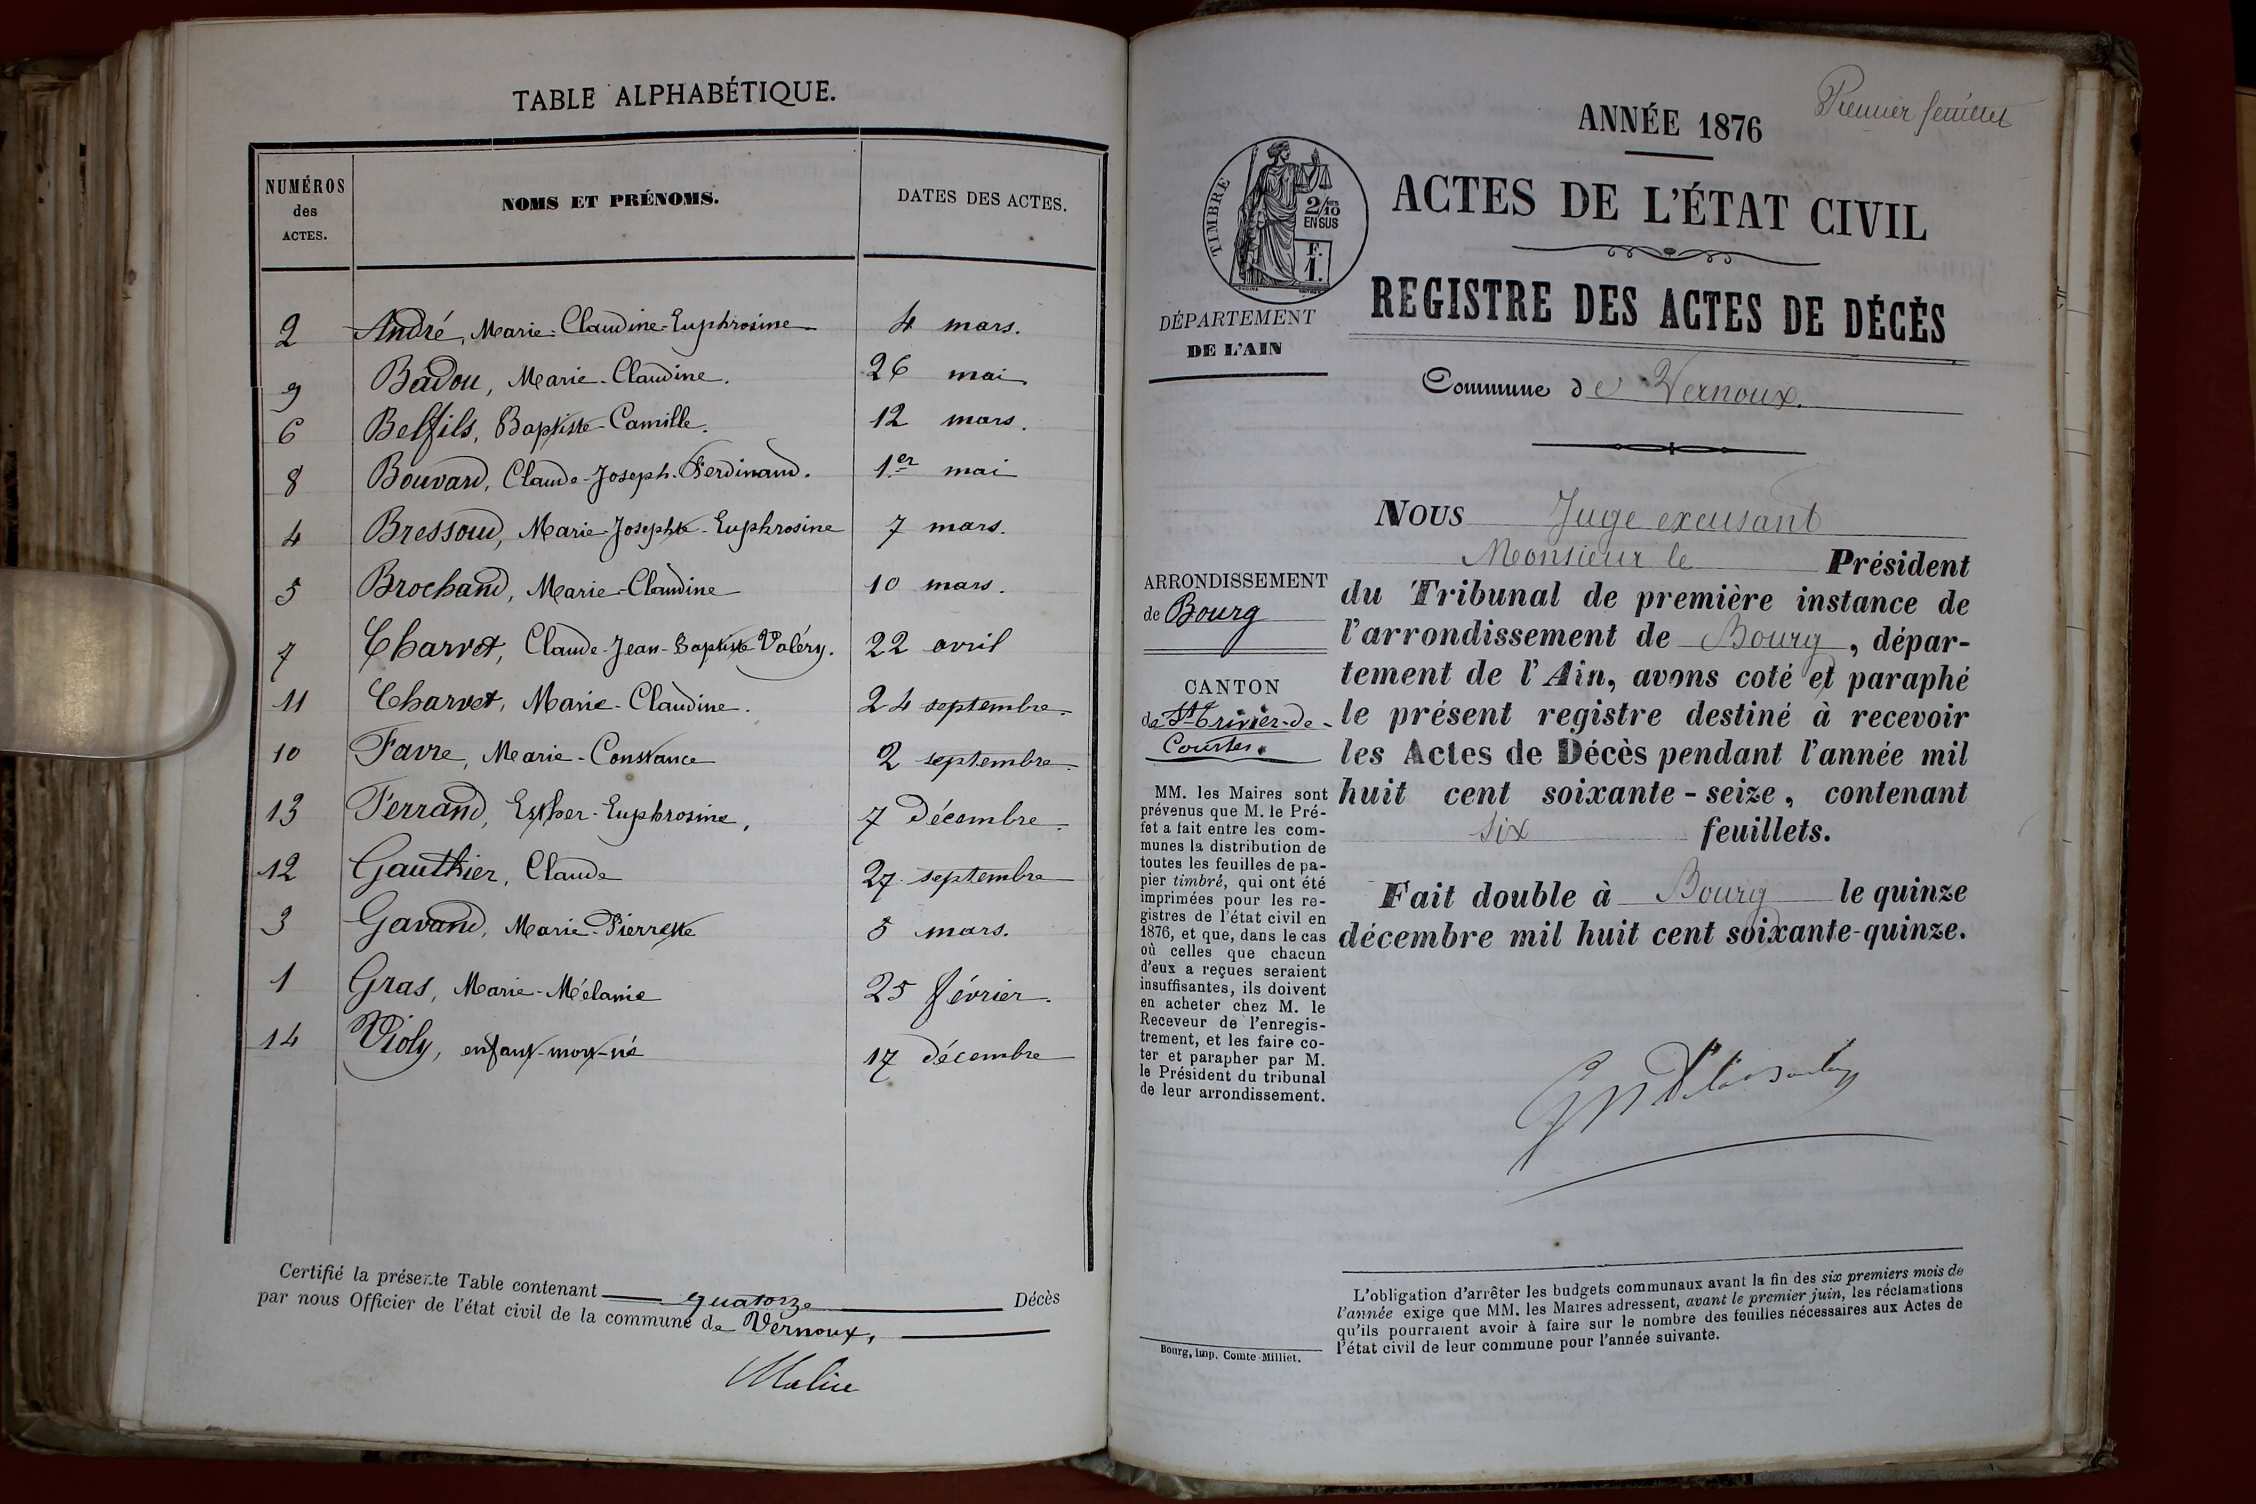 TABLE ALPHABÉTIQUE.
NUMÉROS des ACTES. NOMS ET PRÉNOMS. DATES DES ACTES.
2 André, Marie-Claudine-Euphrosine 4 mars.
9 Badou, Marie-Claudine. 26 mai
6 Belfils, Baptiste-Camille. 12 mars.
8 Bouvard, Claude-Joseph-Ferdinand. 1er mai
4 Bressoud, Marie-Josephte-Euphrosine 7 mars.
5 Brochand, Marie-Claudine 10 mars.
7 Charvet, Claude-Jean-Baptiste-Valéry. 22 avril
11 Charvet, Marie-Claudine. 24 septembre.
10 Favre, Marie-Constance 2 septembre.
13 Ferrand, Esther-Euphrosine, 7 Décembre.
12 Gauthier, Claude 27 septembre
3 Gavand, Marie-Pierrette 5 mars.
1 Gras, Marie-Mélanie 25 février.
14 Violy, enfant-mort-né 17 décembre
Certifié la présente Table contenant quatorze Décès
par nous Officier de l'état civil de la commune de Vernoux,
Premier feuillet
ANNÉE 1876
TIMBRE
2/10
EN SUS
F.
1.
ACTES DE L'ÉTAT CIVIL
REGISTRE DES ACTES DE DÉCÈS
DÉPARTEMENT
DE L'AIN
Commune de Vernoux.
ARRONDISSEMENT
de Bourg
CANTON
de St-Trivier-de-
Courtes.
MM. les Maires sont
prévenus que M. le Pré-
fet a fait entre les com-
munes la distribution de
toutes les feuilles de pa-
pier timbré, qui ont été
imprimées pour les re-
gistres de l'état civil en
1876, et que, dans le cas
où celles que chacun
d'eux a reçues seraient
insuffisantes, ils doivent
en acheter chez M. le
Receveur de l'enregis-
trement, et les faire co-
ter et parapher par M.
le Président du tribunal
de leur arrondissement.
Bourg, imp. Comte-Milliet.
NOUS Juge excusant
Monsieur le Président
du Tribunal de première instance de
l'arrondissement de Bourg, dépar-
tement de l'Ain, avons coté et paraphé
le présent registre destiné à recevoir
les Actes de Décès pendant l'année mil
huit cent soixante-seize, contenant
six feuillets.
Fait double à Bourg le quinze
décembre mil huit cent soixante-quinze.
L'obligation d'arrêter les budgets communaux avant la fin des six premiers mois de
l'année exige que MM. les Maires adressent, avant le premier juin, les réclamations
qu'ils pourraient avoir à faire sur le nombre des feuilles nécessaires aux Actes de
l'état civil de leur commune pour l'année suivante.